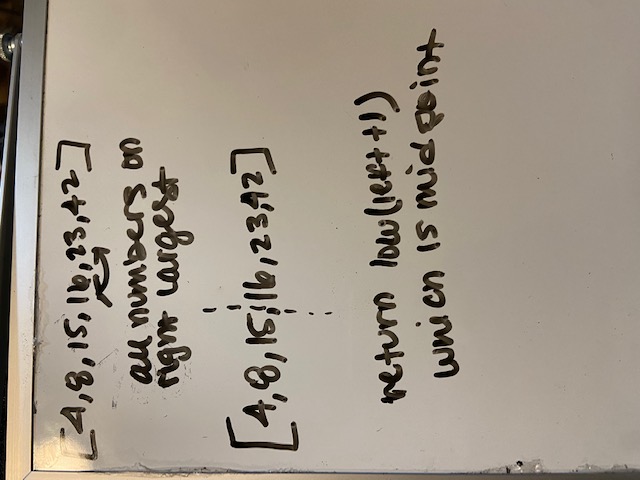 [4,8,15,16,23,42]
all numbers on
right largest
[4,8,15,16,23,42]
return low(left+1)
which is midpoint